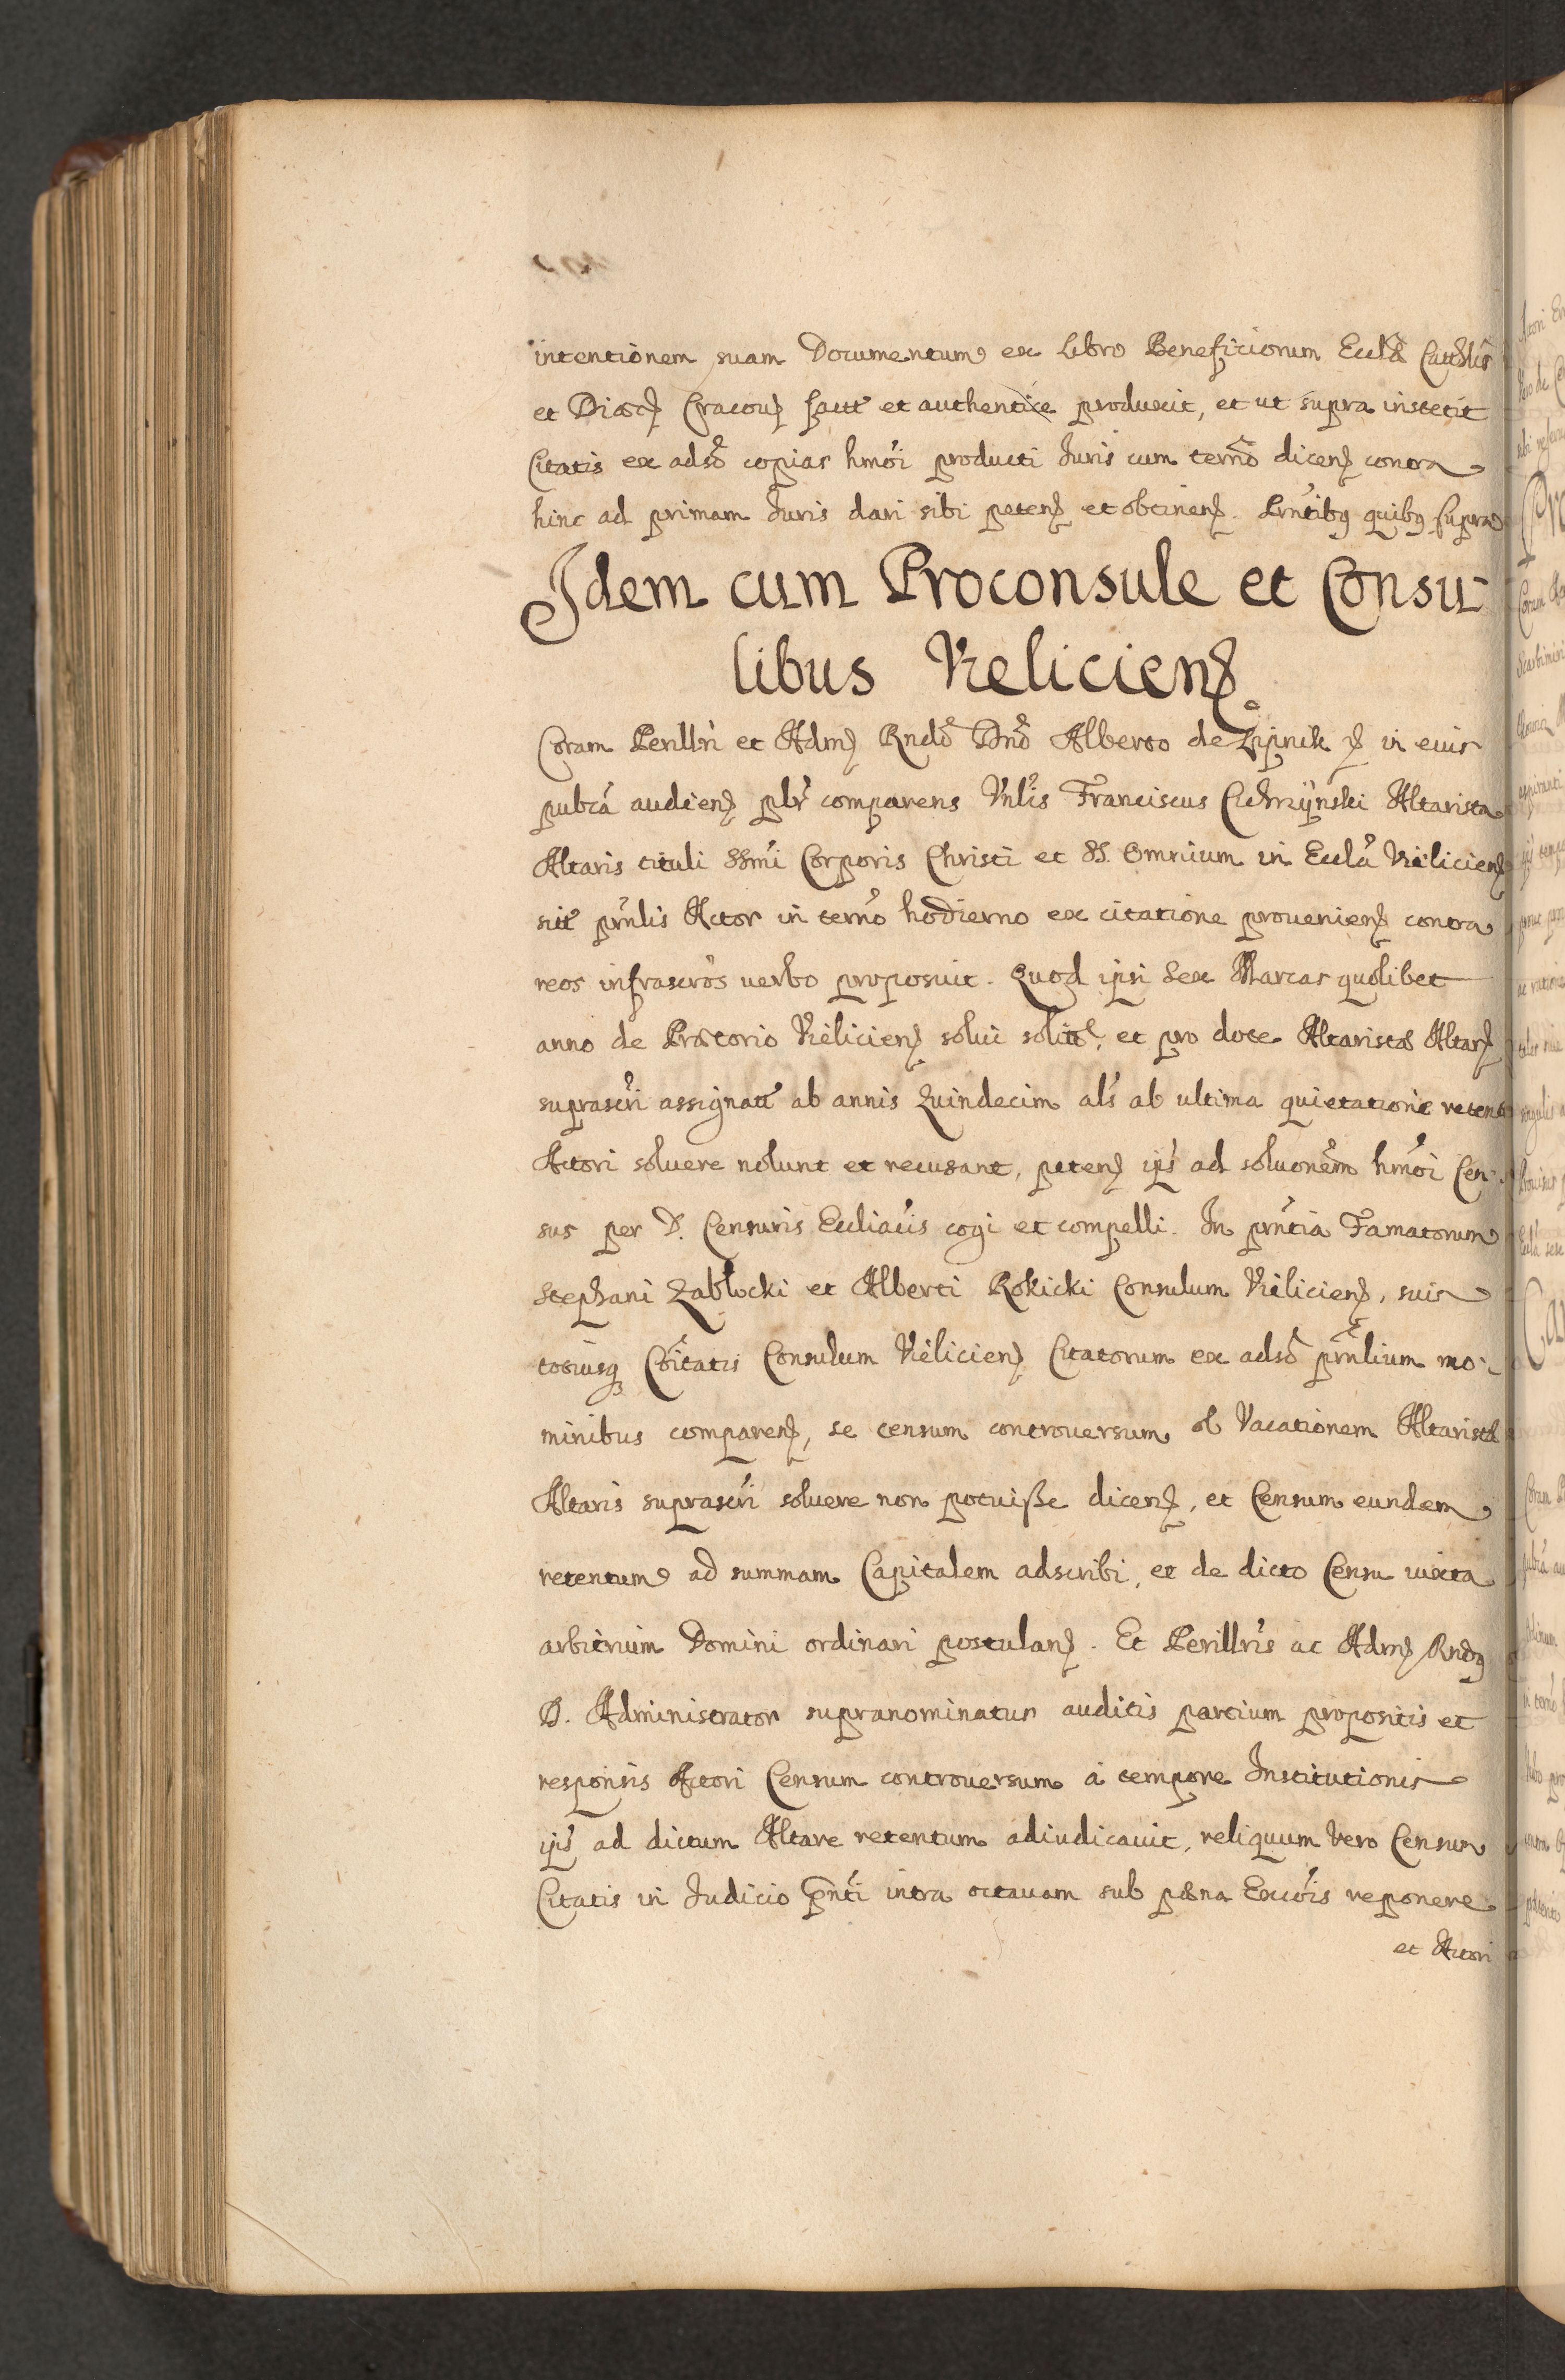 intentionem suam Documentum ex Libro Beneficiorum Ecclæ Cathđlis
et Diœc. Cracou. factt et authentice produxit, et ut supra institit
Citatis ex adső copias hmői producti Iuris cum termő dicen. contra
hinc ad primam Iuris dari sibi peten. et obtinen. Prntibq quibq supra
Idem cum Proconsule et Consu-
libus Vieliciens.
Coram Perillri et Adm. Rndő Dnő Alberto de Lipnik in eius
pubcá audien. pltr comparens Vnlis Franciscus Altarista
Altaris tituli SSmi Corporis Christi et SS. Omnium in Ecclá Vielicien.
prnlis Actor in termő hodierno ex citatione prouenien. contra
reos infrascrős verbo proposuit. Quod ipsi Sex Marcas quolibet
anno de Prætorio Vielicien. solui solitt, et pro dote Altaristæ Altar.
suprascri assignatt ab annis Quindecim als ab ultima quietatione retent
Actori soluere nolunt et recusant, peten. ips ad soluonem hmői Cen-
sus per D. Censuris Eccliacis cogi et compelli. In prntia Famatorum
Stephani Zabłocki et Alberti Rokicki Consulum Vielicien., suis
totiusq Cőitatis Consulum Vielicien. Citatorum ex adső prnlium no-
minibus comparen., se censum controuersum ob Vacationem Altaristæ
Altaris suprascri soluere non potuisse dicen., et Censum eundem
retentum ad summam Capitalem adscribi, et de dicto Censu iuxta
arbitrium Domini ordinari postulan. Et Perillris ac Adm. Rndq
D. Administrator supranominatus auditis partium propositis et
responsis Actori Censum controuersum á tempore Institutionis
ips ad dictum Altare retentum adiudicauit, reliquum vero Censum
Citatis in Iudicio prnti intra octauam sub pœna Excőis reponere
et Actori